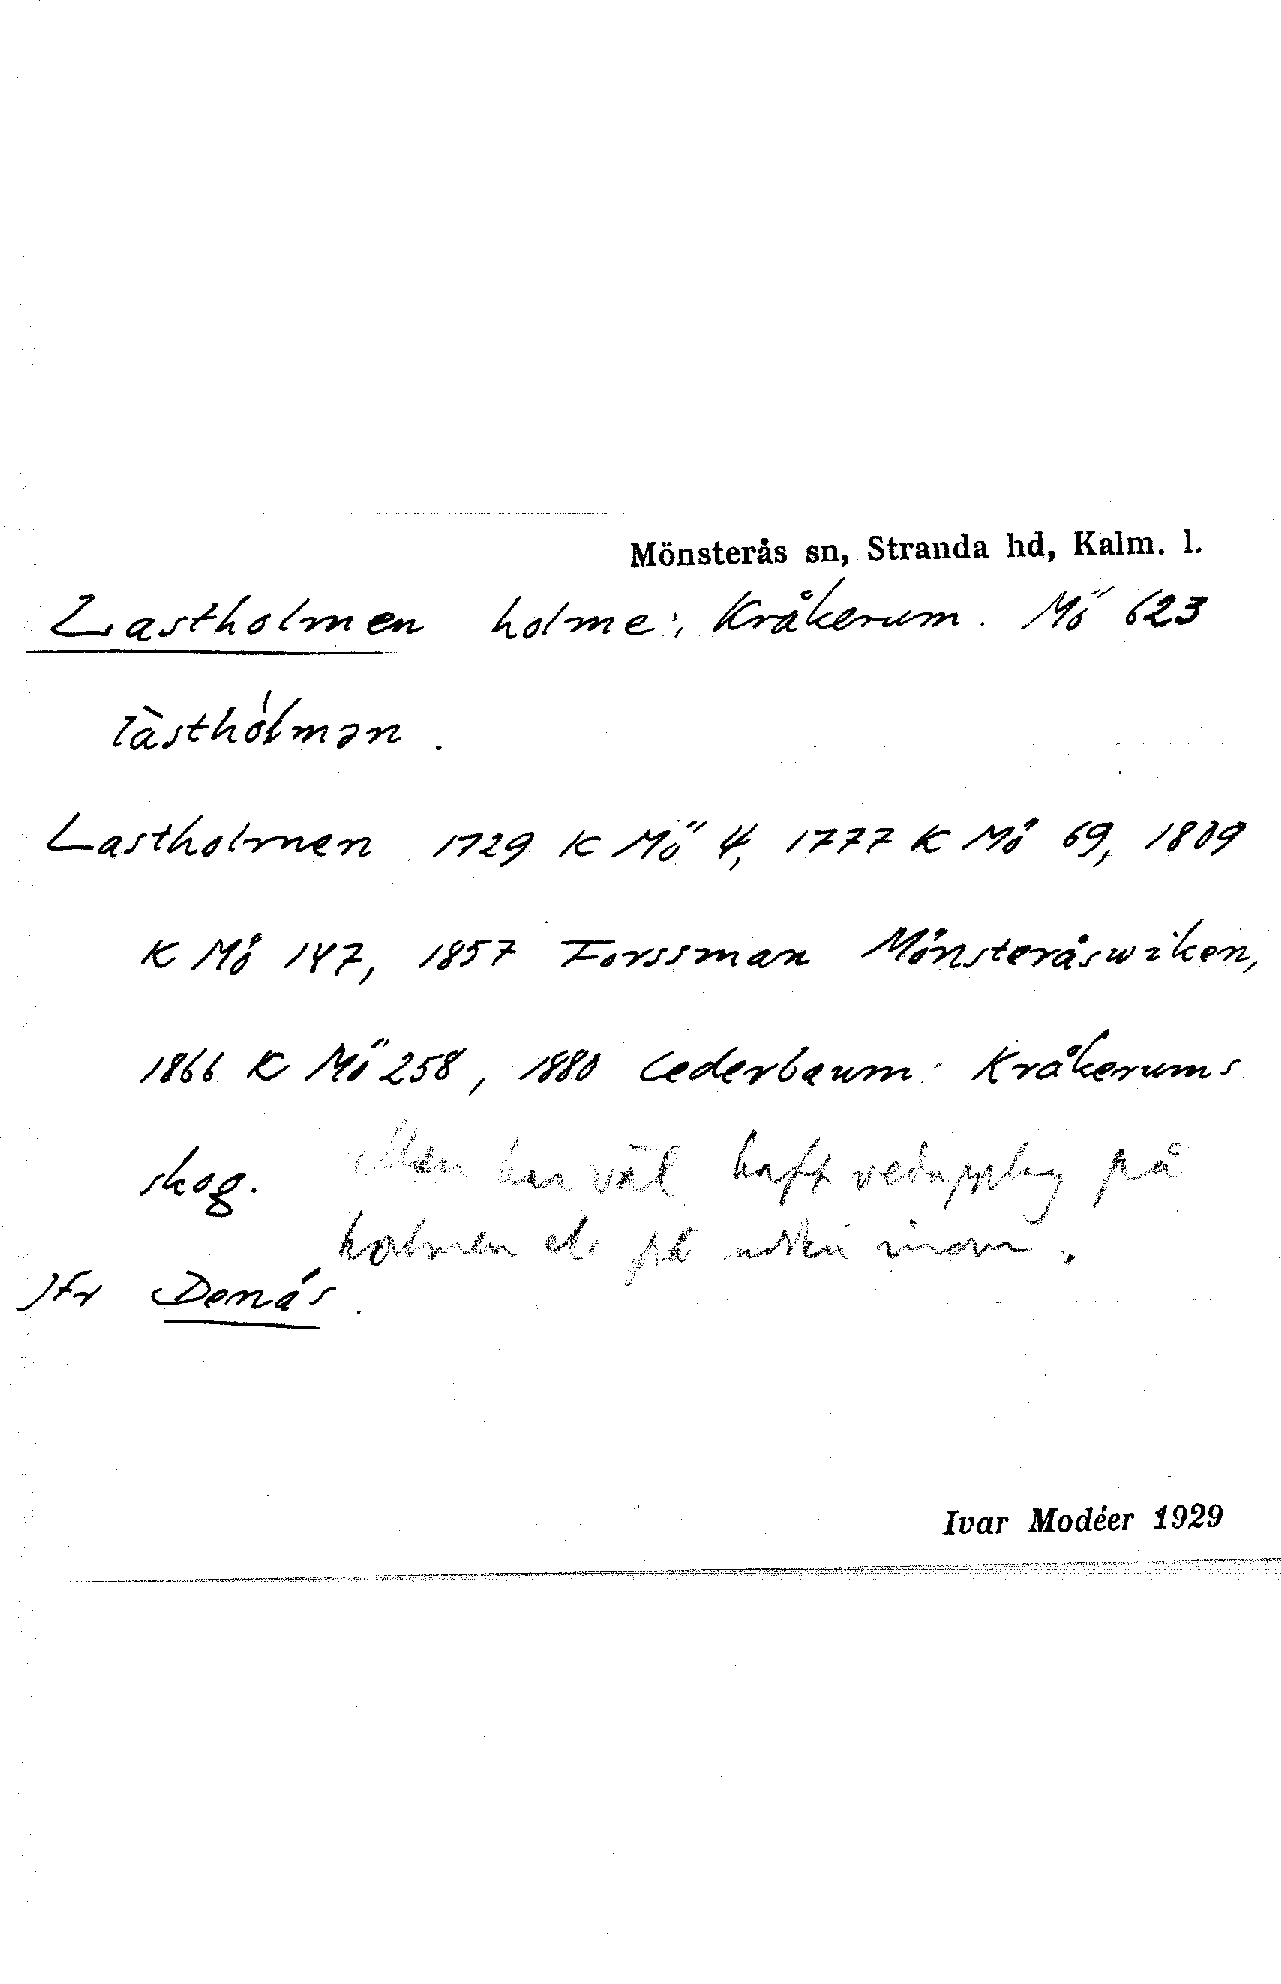 Mönsterås sn, Stranda hd, Kalm. l.
Lastholmen holme; Kråkerum. Mö 623
làsthól̍mən.
Lastholmen 1729 K Mö 4, 1777 K Mö 69, 1809
K Mö 147, 1857 Forssman Mönsteråswiken,
1866 K Mö 258, 1880 Cederbaum Kråkerums
skog. Man har väl haft vedupplag på
holmen el. på udden inom.
Jfr Denäs.
Ivar Modéer 1929